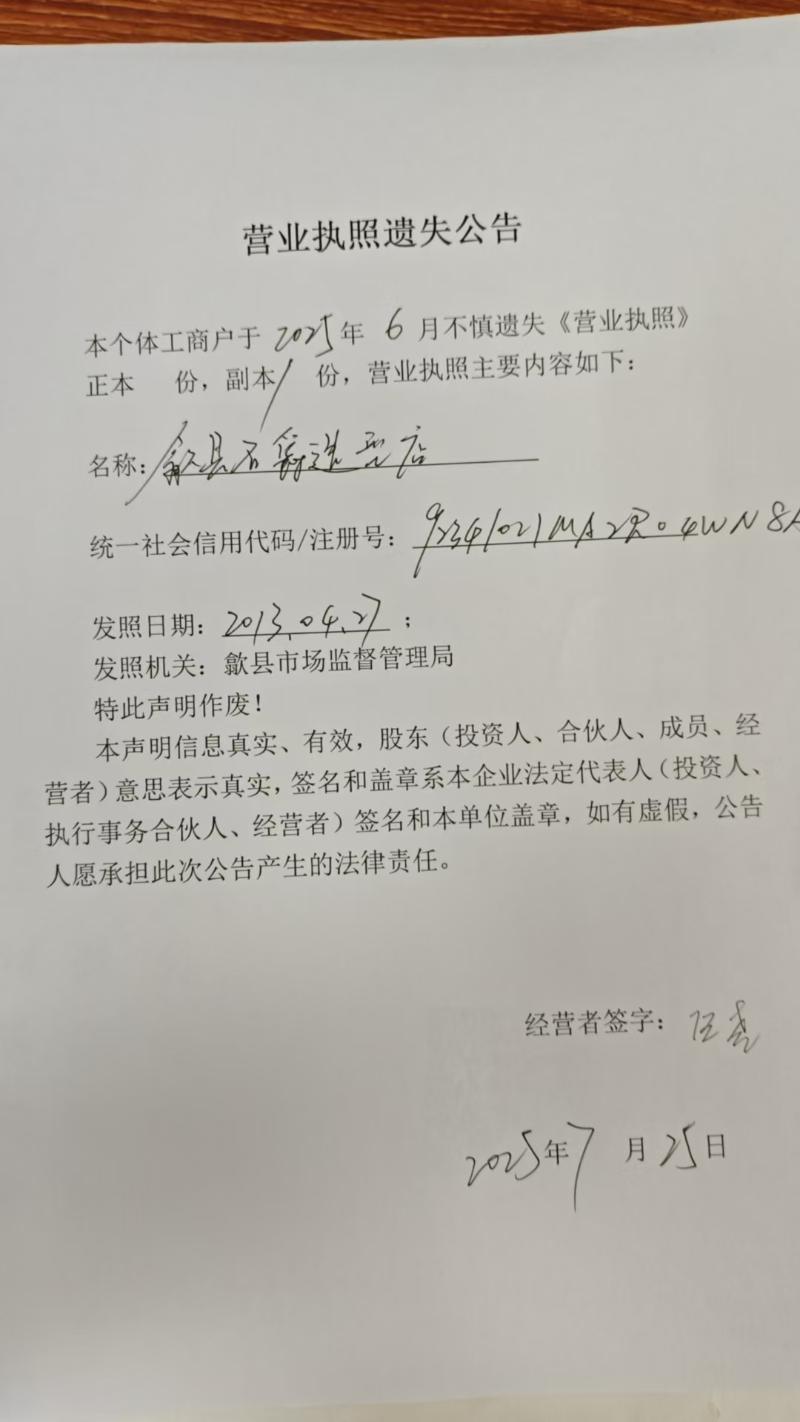 营业执照遗失公告
本个体工商户于 2025 年 6 月不慎遗失《营业执照》
正本 份，副本 1 份，营业执照主要内容如下：
名称：歙县
统一社会信用代码/注册号：
发照日期：2013.04.27；
发照机关：歙县市场监督管理局
特此声明作废！
本声明信息真实、有效，股东（投资人、合伙人、成员、经
营者）意思表示真实，签名和盖章系本企业法定代表人（投资人、
执行事务合伙人、经营者）签名和本单位盖章，如有虚假，公告
人愿承担此次公告产生的法律责任。
经营者签字：
2025年7月25日